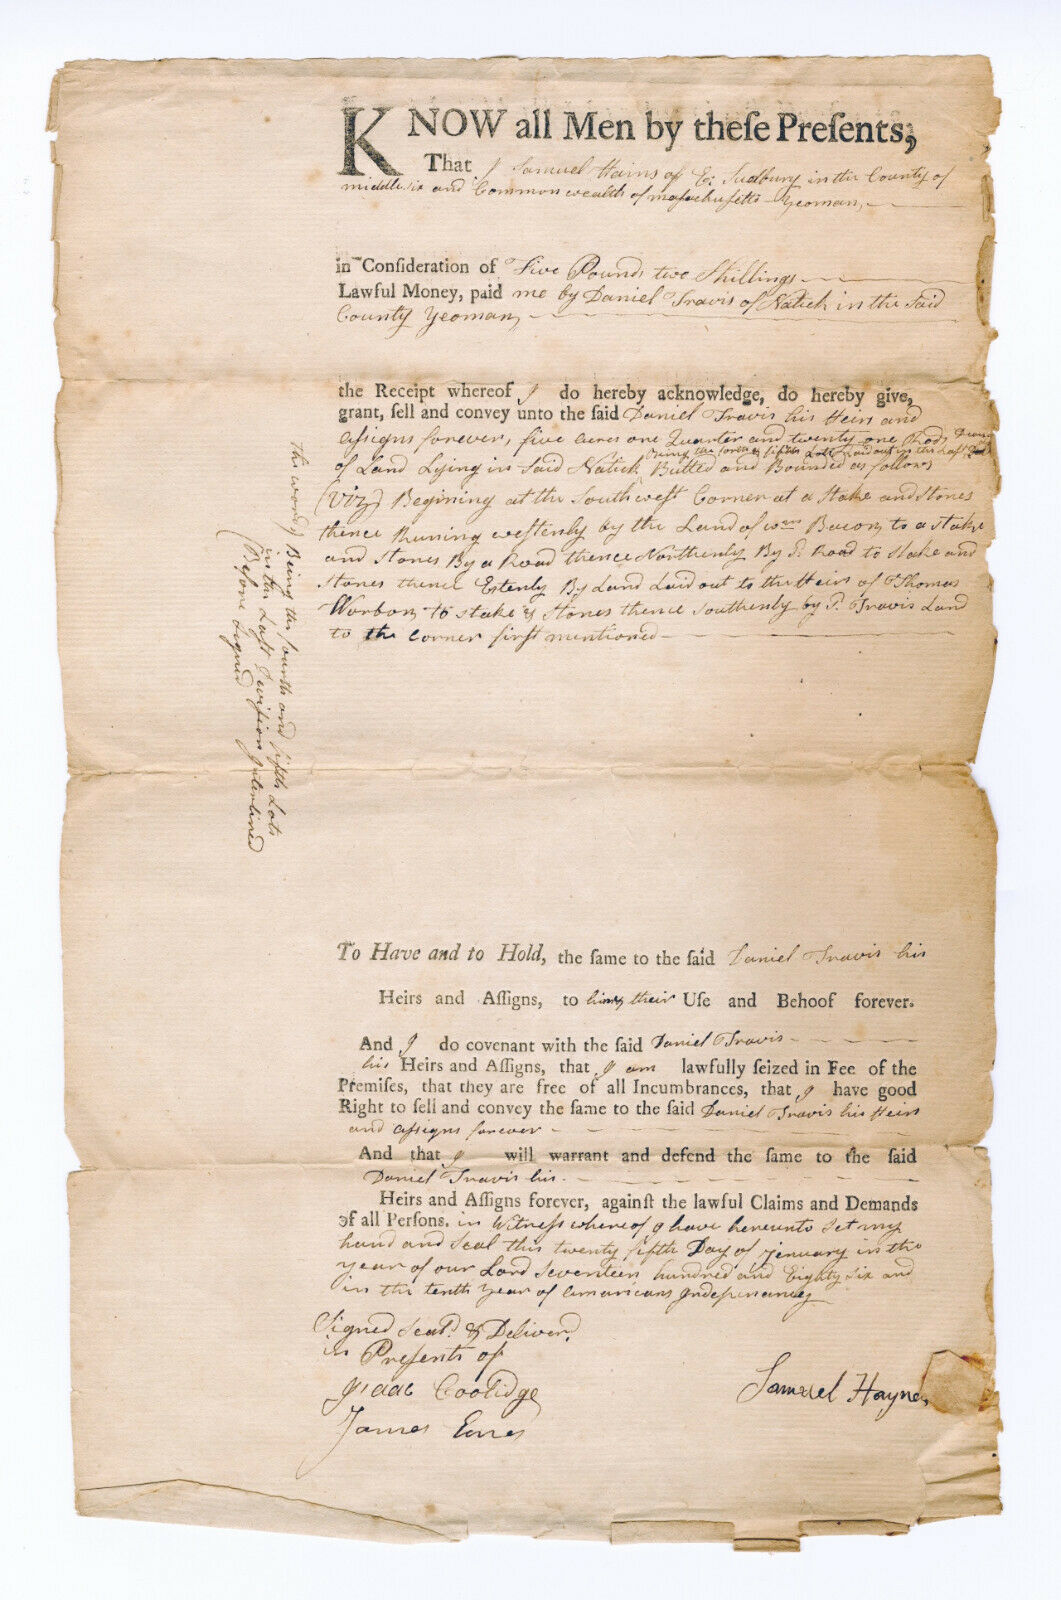 KNOW all Men by theſe Preſents,
That I Samuel Hains of Et Sudbury in the County of
middlesix and Commonwealth of massachusetts Yeoman,
in Conſideration of Five Pounds two Shillings
Lawful Money, paid me by Daniel Travis of Natick in the Said
County Yeoman,
the Receipt whereof I do hereby acknowledge, do hereby give,
grant, ſell and convey unto the ſaid Daniel Travis his Heirs and
assigns forever, five acres one Quarter and twenty one Rods
Being the forth & fifth Lotts Laid out in the Last
of Land Lying in Said Natick Butted and Bounded as follows
(Viz) Begining at the Southwest Corner at a Stake and Stones
thence Runing westenly by the Land of wm Bacon to a stake
and Stones By a Road thence Northenly By sd Road to Stake and
Stones thence Estenly By Land Laid out to the Heirs of Thomas
Worbon to Stake & Stones thence Southenly by sd Travis Land
to the Corner first mentioned
the words Being the fourth and fifth Lots
in the Last Division Interlined
(Before Signed
To Have and to Hold, the ſame to the ſaid Daniel Travis his
Heirs and Aſſigns, to him & their Uſe and Behoof forever.
And I do covenant with the ſaid Daniel Travis
his Heirs and Aſſigns, that I am lawfully ſeized in Fee of the
Premiſes, that they are free of all Incumbrances, that I have good
Right to ſell and convey the ſame to the ſaid Daniel Travis his Heirs
and assigns forever
And that I will warrant and defend the ſame to the ſaid
Daniel Travis his
Heirs and Aſſigns forever, againſt the lawful Claims and Demands
of all Perſons. in Witness whereof I have hereunto Set my
hand and Seal this twenty fifth Day of Jenuary in the
year of our Lord Seventeen hundred and Eighty Six and
in the tenth year of Americans Independancy
Signed Seald. & Deliverd.
in Presents of
Isaac Coolidge
Samuel Haynes
James Eames